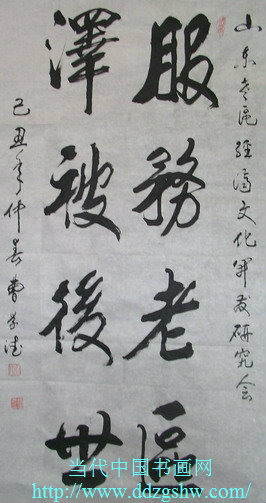 山东老区经济文化开发研究会
服務老區
澤被後世
己丑年仲春曹学德
当代中国书画网
http://www.ddzgshw.com/